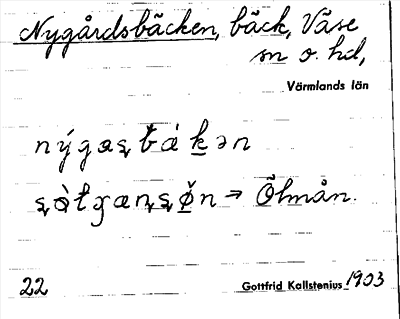 Nygårdsbäcken, bäck, Väse
sn o. hd,
Värmlands län
nýgaꜱ bákən
→ Ölmån.
22 Gottfrid Kallstenius 1903